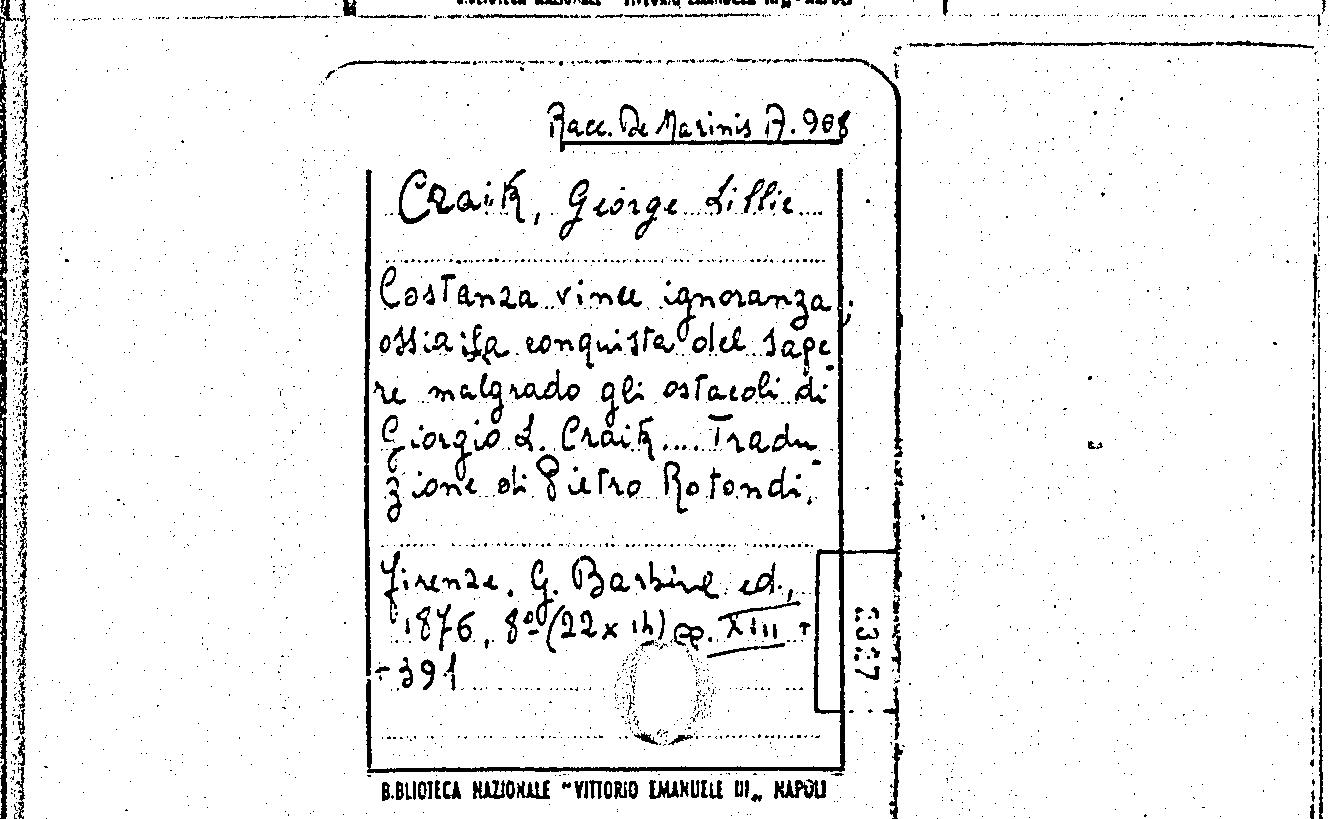 Racc. De Marinis A. 908
Craik, George Lillie
Costanza vince ignoranza;
ossia la conquista del sape
re malgrado gli ostacoli di
Giorgio L. Craik.... Tradu
zione di Pietro Rotondi.
Firenze. G. Barbèra ed.,
1876, 8º (22 x 14) pp. XIII +
+ 391
B.BLIOTECA NAZIONALE "VITTORIO EMANUELE III„ NAPOLI